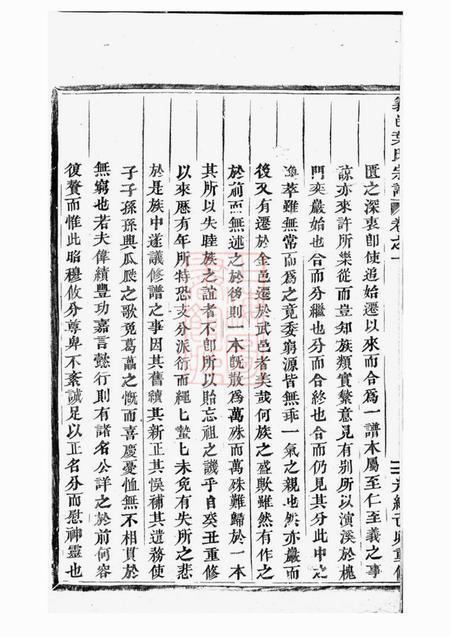 氏宗譜 卷之一
光緒己卯重修
匱之深衷即使追始遷以來而合為一譜本屬至仁至義之事
諒亦來許所樂從而豈知族類實繁意見有別所以演溪於槐
門奕嚴始也合而分繼也分而合終也合而仍見其分此中之
渙萃雖無常而為之竟委窮源皆無乖一氣之親也然亦嚴而
後又有遷於金邑遷於武邑者美哉何族之盛歟雖然有作之
於前而無述之於後則一本既散為萬殊而萬殊難歸於一本
其所以失睦族之誼者不即所以貽忘祖之譏乎自癸丑重修
以來歷有年所特恐支分派衍而繩繩蟄蟄未免有失所之悲
於是族中遂議修譜之事因其舊續其新正其悞補其遺務使
子子孫孫興瓜瓞之歌免葛藟之慨而喜慶憂恤無不相貫於
無窮也若夫偉績豐功嘉言懿行則有諸名公詳之於前何容
復贅而惟此昭穆攸分尊卑不紊誠足以正名分而慰神靈也